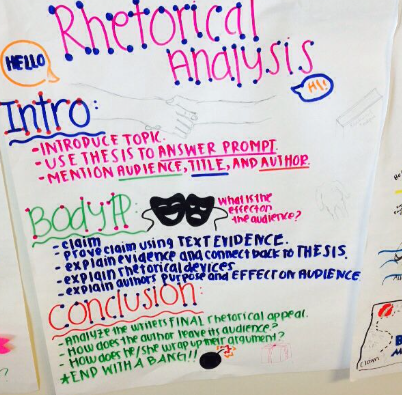 Rhetorical
Analysis
HELLO
HI!
Intro:
- INTRODUCE TOPIC.
- USE THESIS TO ANSWER PROMPT.
- MENTION AUDIENCE, TITLE, AND AUTHOR.
BODY
What is the
effect on
the audience?
- claim
- prove claim using TEXT EVIDENCE.
- explain evidence and connect back to THESIS.
- explain rhetorical devices
- explain authors purpose and EFFECT ON AUDIENCE
Conclusion:
- Analyze the writers FINAL rhetorical appeal.
- How does the author leave its audience?
- How does he/she wrap up their argument?
*END WITH A BANG!!